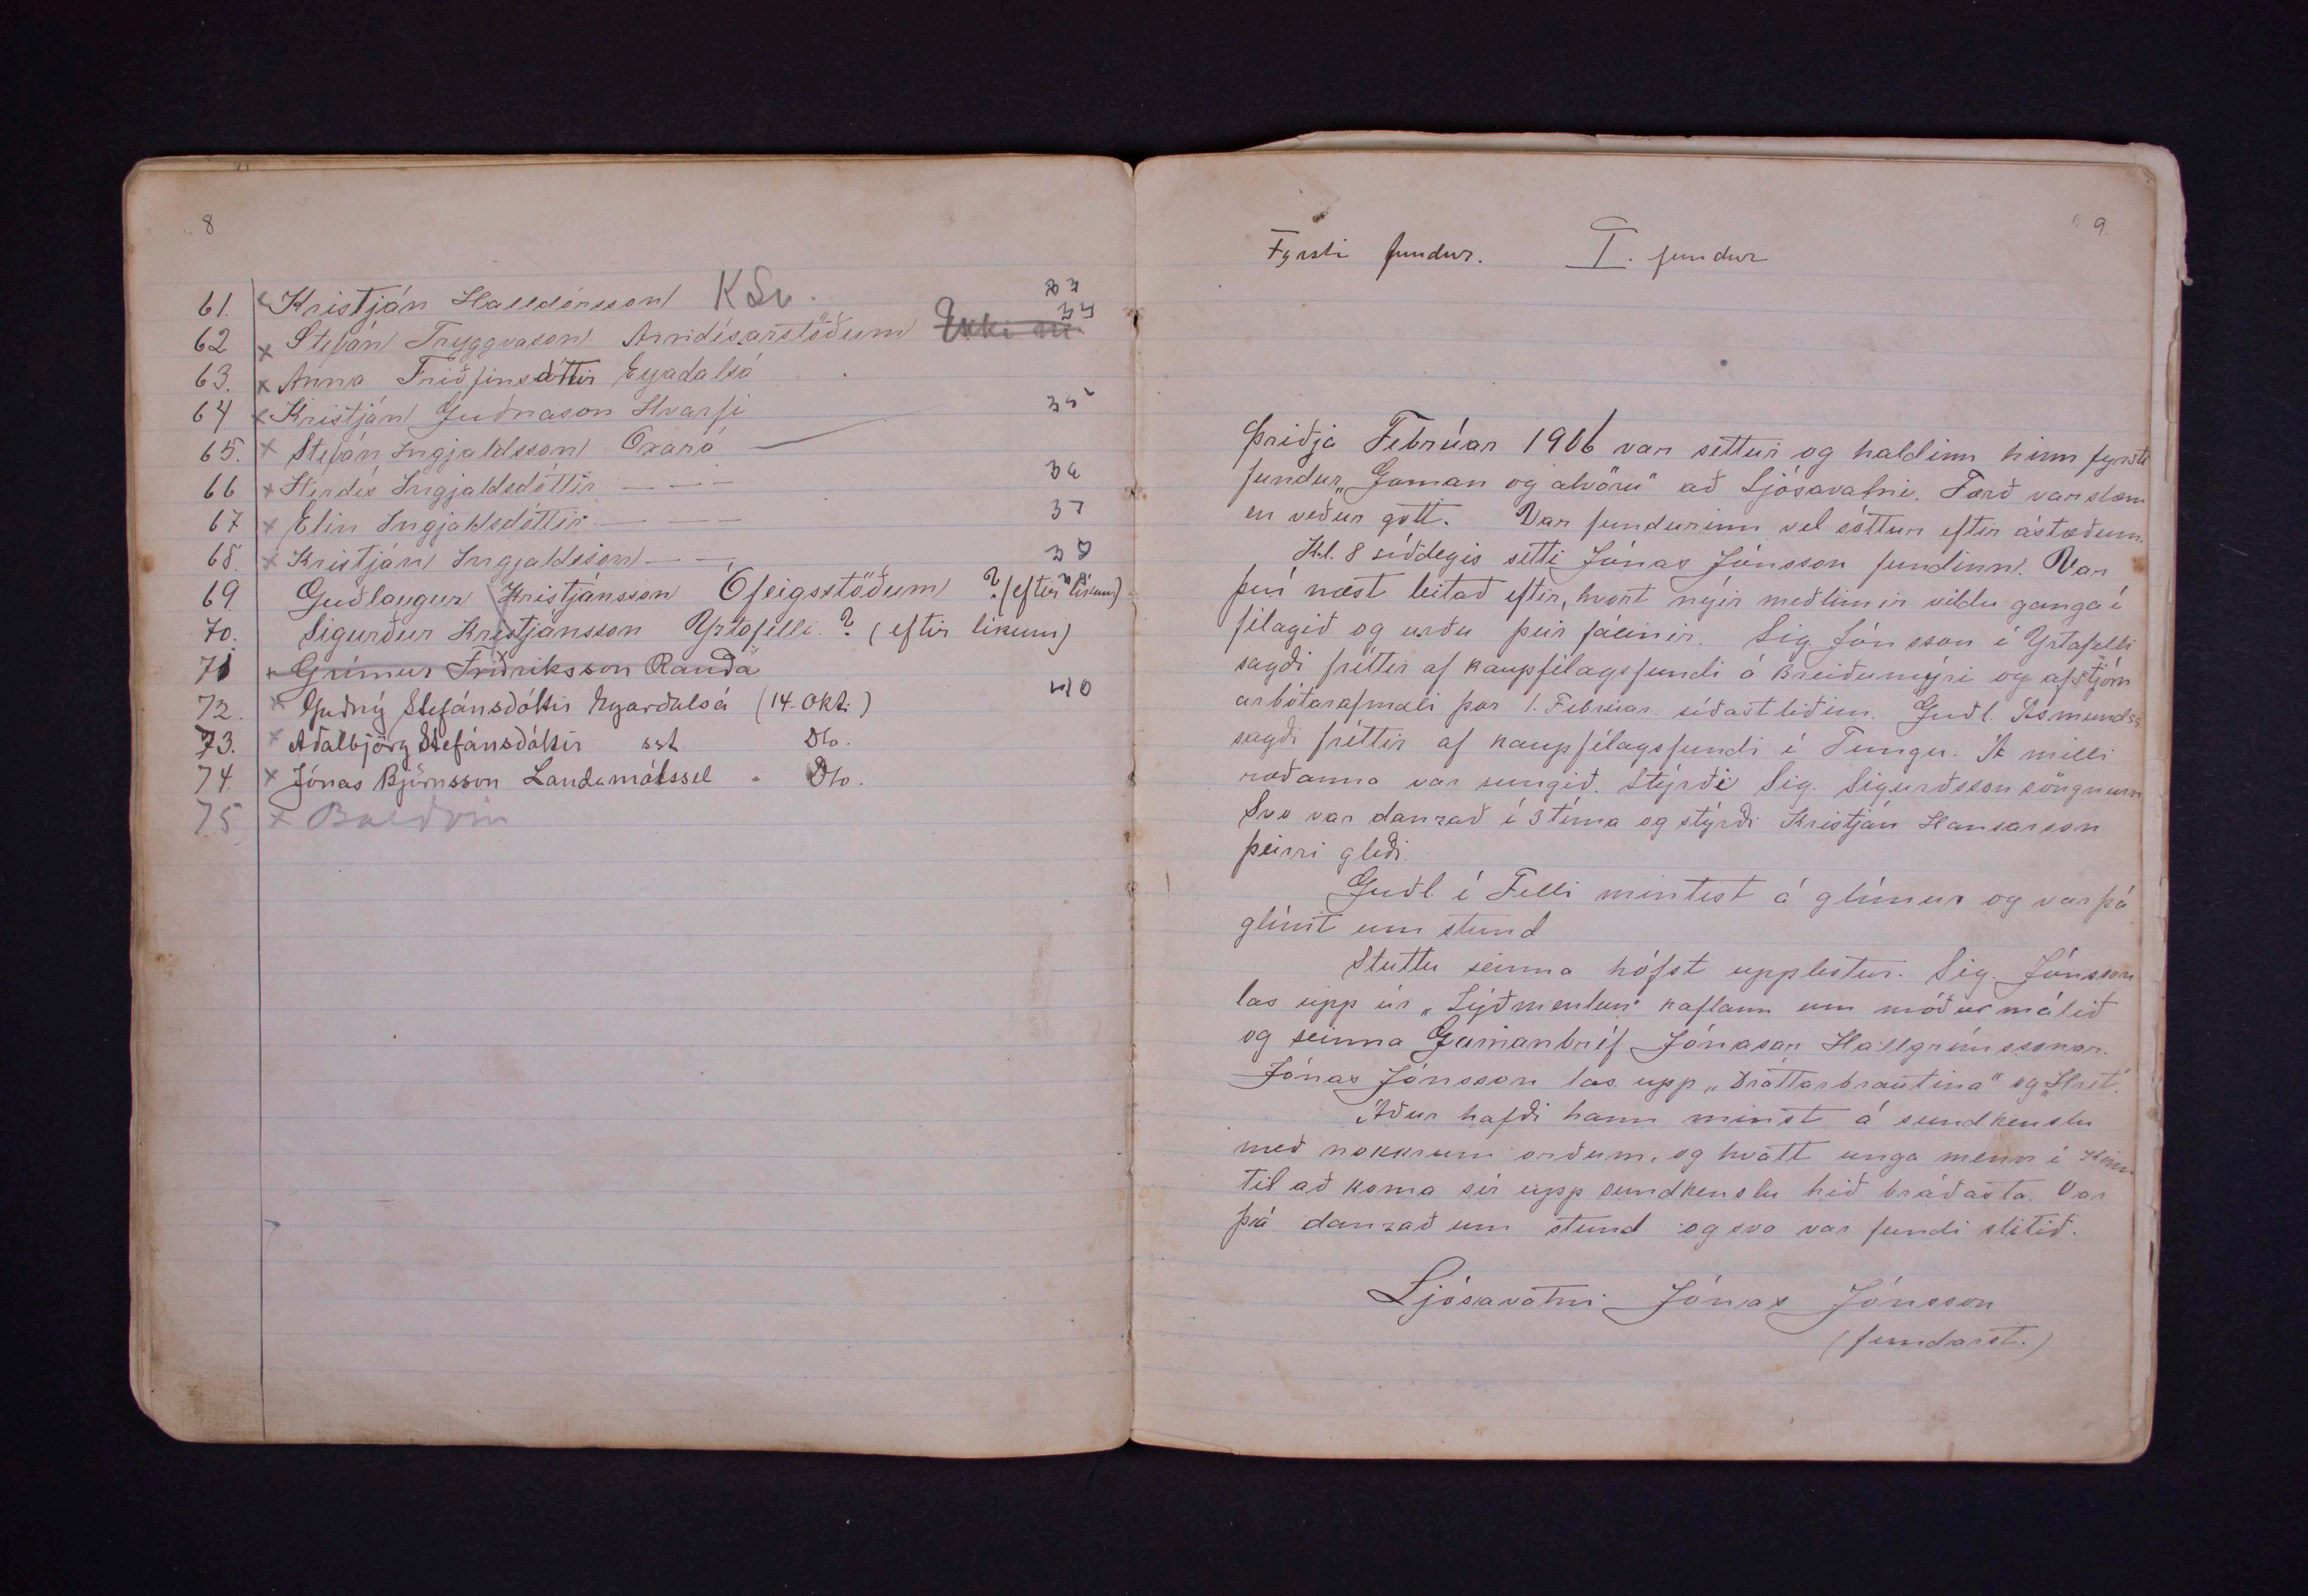 8
61. x Kristján Halldórsson KSv. 33
62 x Stefán Tryggvason Arndísarstöðum Ekki 34
63. x Anna Friðfinsdóttir Eyadalsá
64 x Kristján Guðnason Hvarfi 35
65. x Stefán Ingjaldsson Öxará
66 x Herdís Ingjaldsdóttir — — — 36
67 x Elín Ingjaldsdóttir — — — 37
68. x Kristján Ingjaldsson — —
69 Guðlaugur Kristjánsson Ófeigsstöðum ? (eftir líkum)
70. Sigurður Kristjánsson Yztafelli ? (eftir líkum)
71 x Grímur Friðriksson Rauðá
72. x Guðný Stefánsdóttir Eyardalsá (14. Okt.) 40
73. x Aðalbjörg Stefánsdóttir sst. Do.
74. x Jónas Björnsson Landamótssel - Do.
75 x Baldvin
9
Fyrsti fundur. I. fundur
Þriðja Febrúar 1906 var settur og haldinn hinn fyrsti
fundur „Gaman og alvöru" að Ljósavatni. Færð var slæm
en veður gott. Var fundurinn vel sóttur eftir ástæðum.
Kl. 8 síðdegis setti Jónas Jónsson fundinn. Var
því næst leitað eftir, hvort nýir meðlimir vildu ganga í
félagið og urðu þeir fáeinir. Sig Jónsson í Yztafelli
sagði fréttir af kaupfélagsfundi á Breiðumýri og af stjórn
arbótarafmæli þar 1. Febrúar síðastliðinn. Guðl. Ásmundss
sagði fréttir af kaupfélagsfundi í Tungu. Á milli
ræðanna var sungið. Stýrði Sig. Sigurðsson söngnum
Svo var danzað í 3 tíma og stýrði Kristján Hansarson
þeirri gleði.
Guðl. í Felli mintist á glímur og var þá
glímt um stund
Stuttu seinna hófst upplestur. Sig. Jónsson
las upp úr „Lýðmentun" kaflann um móðurmálið
og seinna Gamanbréf Jónasar Hallgrímssonar.
Jónas Jónsson las upp „Dráttarbrautina" og „Hret".
Áður hafði hann minst á sundkenslu
með nokkrum orðum, og hvatt unga menn í Kinn
til að koma sér upp sundkenslu hið bráðasta. Var
þá danzað um stund og svo var fundi slitið.
Ljósavatni Jónas Jónsson
(fundarst.)